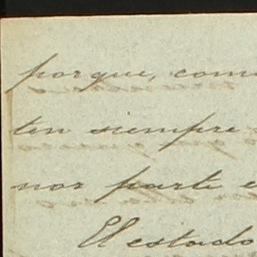 porque, com
ten siempre
nor parte e
El estado